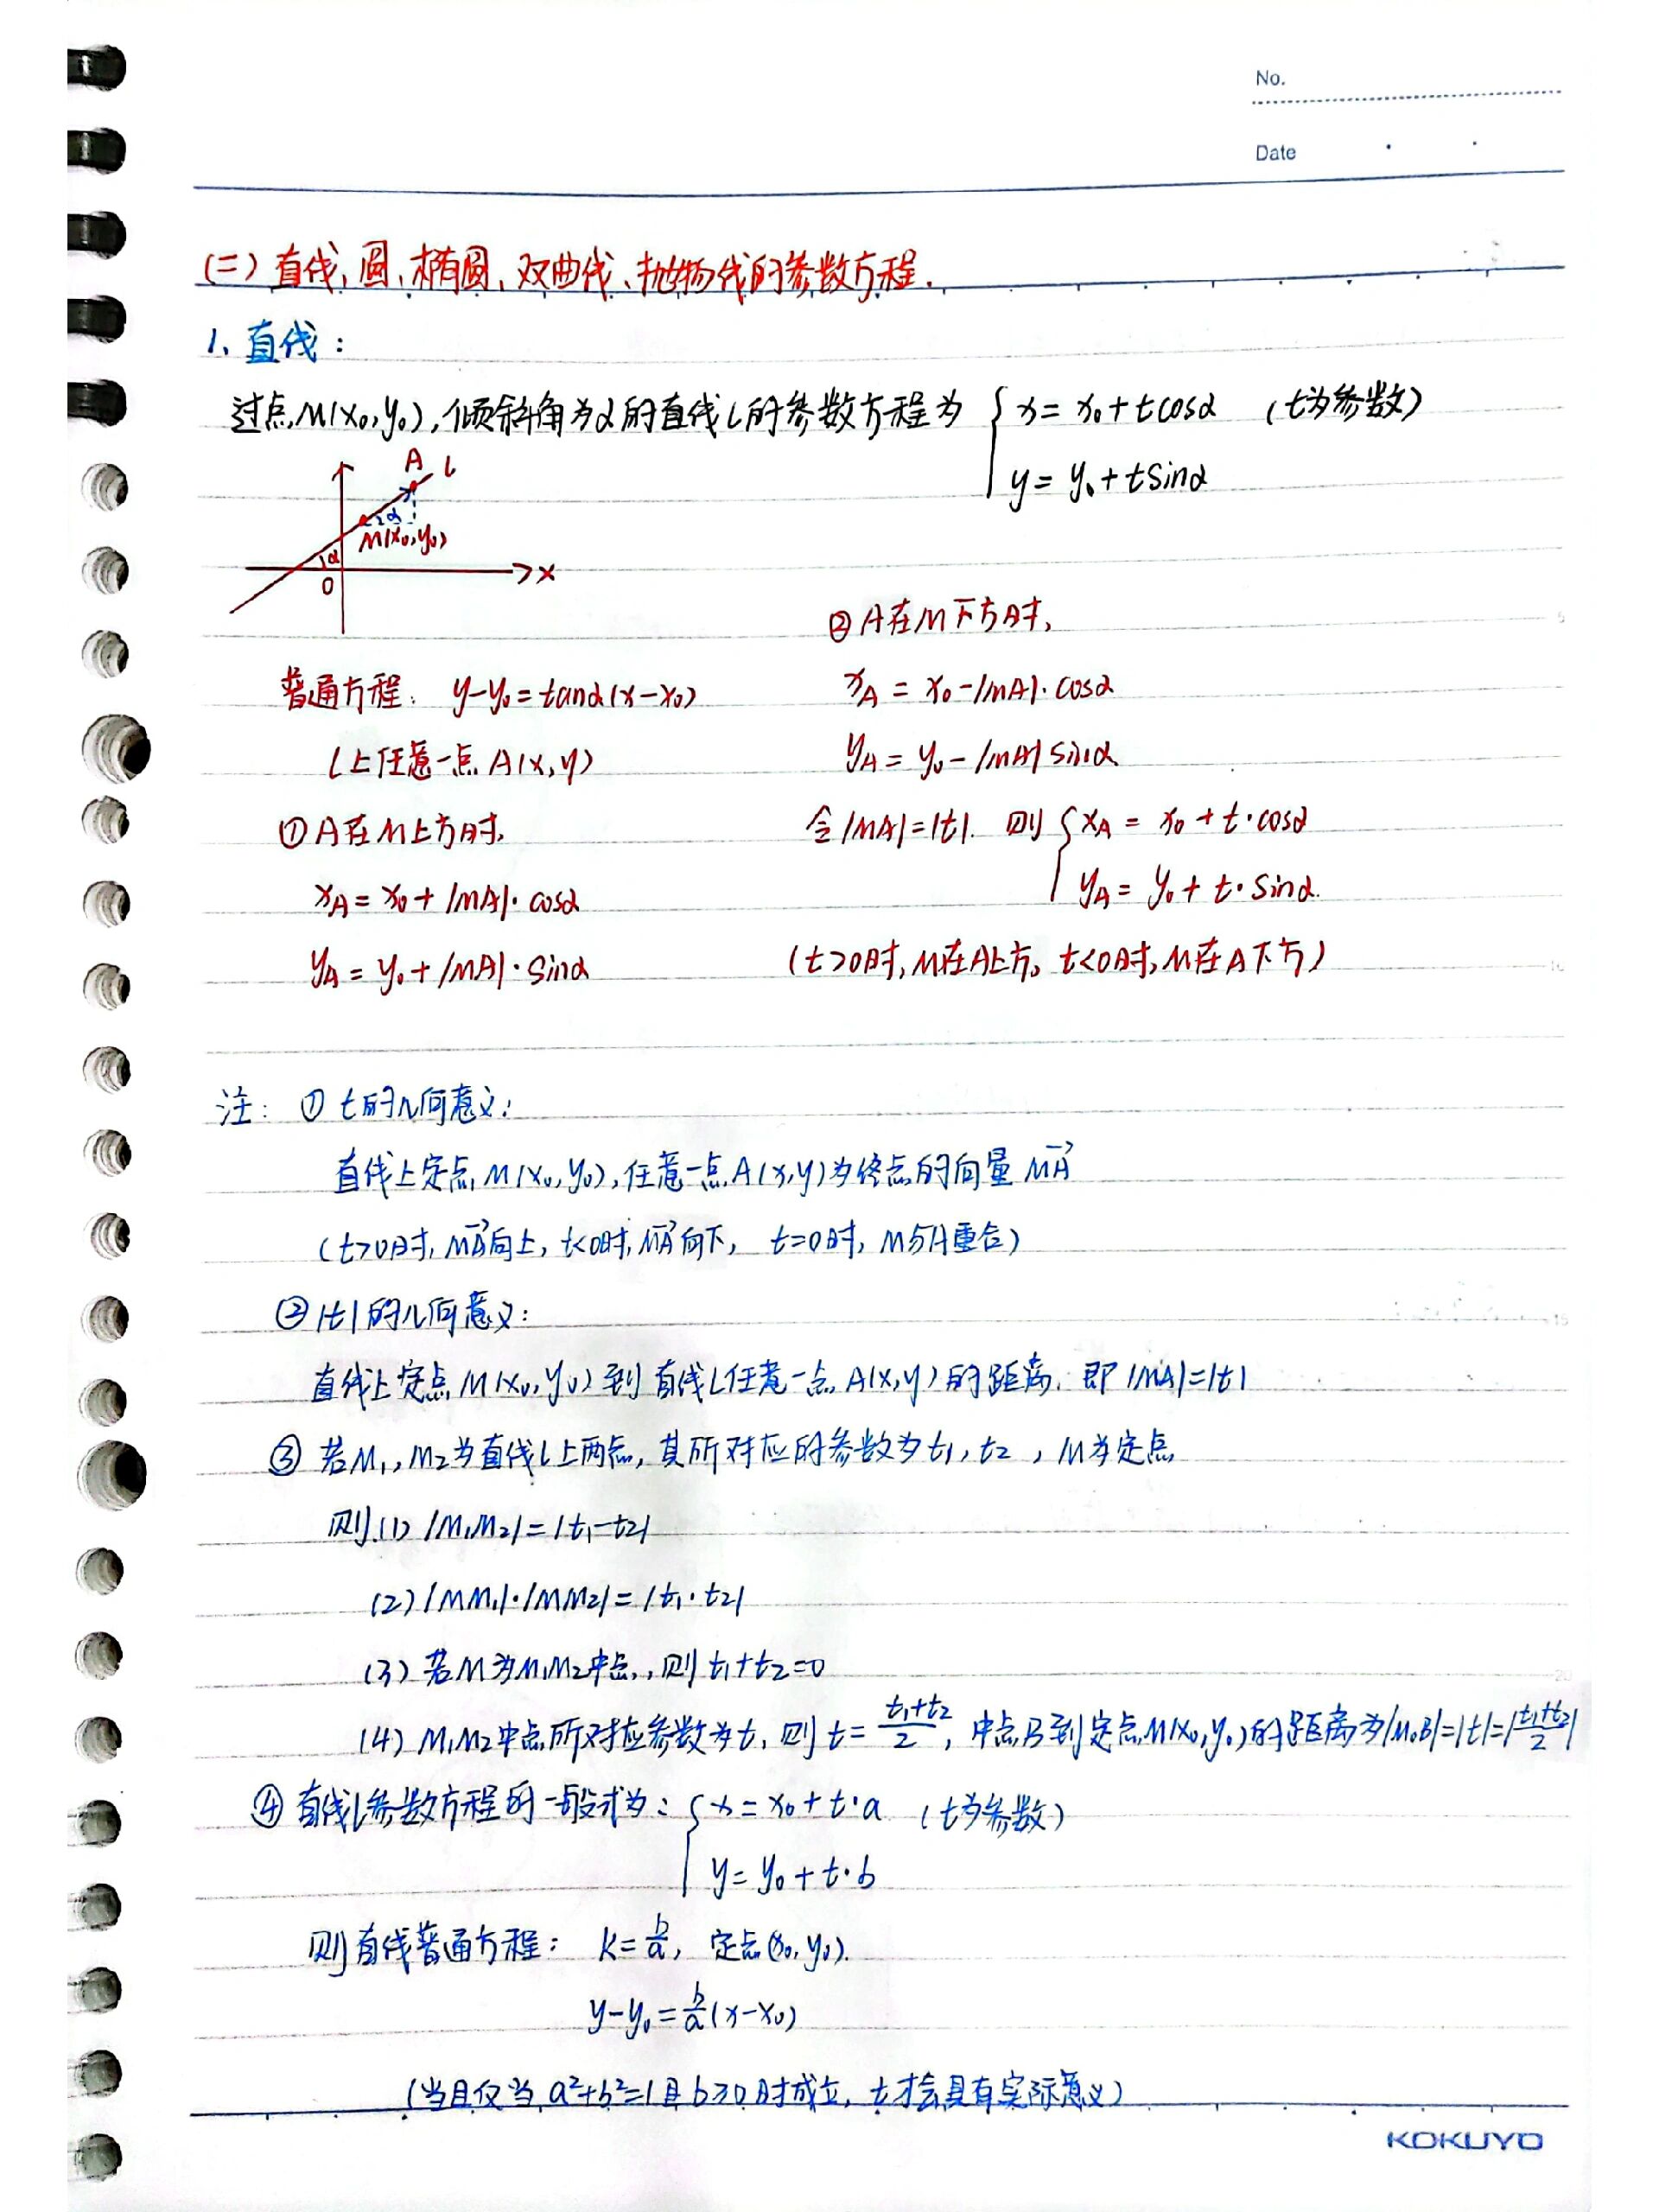 No.
Date
(二) 直线、圆、椭圆、双曲线、抛物线的参数方程.
1、直线：
过点M(x₀,y₀),倾斜角为α的直线l的参数方程为 { x = x₀ + tcosα (t为参数)
y = y₀ + tsinα
A l
α
M(x₀,y₀)
α
O
x
普通方程： y-y₀=tanα(x-x₀)
l上任意一点A(x,y)
① A在M上方时,
x_A = x₀ + |MA|·cosα
y_A = y₀ + |MA|·sinα
② A在M下方时,
x_A = x₀ - |MA|·cosα
y_A = y₀ - |MA| sinα
令|MA|=|t|. 则 { x_A = x₀ + t·cosα
y_A = y₀ + t·sinα.
(t>0时, M在A上方。t<0时, M在A下方)
注： ① t的几何意义：
直线上定点M(x₀,y₀),任意一点A(x,y)为终点的向量MA⃗
(t>0时, MA⃗向上, t<0时, MA⃗向下, t=0时, M与A重合)
② |t|的几何意义：
直线上定点M(x₀,y₀)到直线l任意一点A(x,y)的距离, 即|MA|=|t|
③ 若M₁,M₂为直线l上两点, 其所对应的参数为t₁,t₂, M为定点
则(1) |M₁M₂|=|t₁-t₂|
(2) |MM₁|·|MM₂|=|t₁·t₂|
(3) 若M为M₁M₂中点, 则t₁+t₂=0
(4) M₁M₂中点所对应参数为t, 则t=(t₁+t₂)/2, 中点B到定点M(x₀,y₀)的距离为|M₀B|=|t|=|(t₁+t₂)/2|
④ 直线l参数方程的一般式为： { x = x₀ + t·a (t为参数)
y = y₀ + t·b
则直线普通方程： k=b/a, 定点(x₀,y₀).
y-y₀=b/a(x-x₀)
(当且仅当a²+b²=1且b≥0时成立, t才会具有实际意义)
KOKUYO